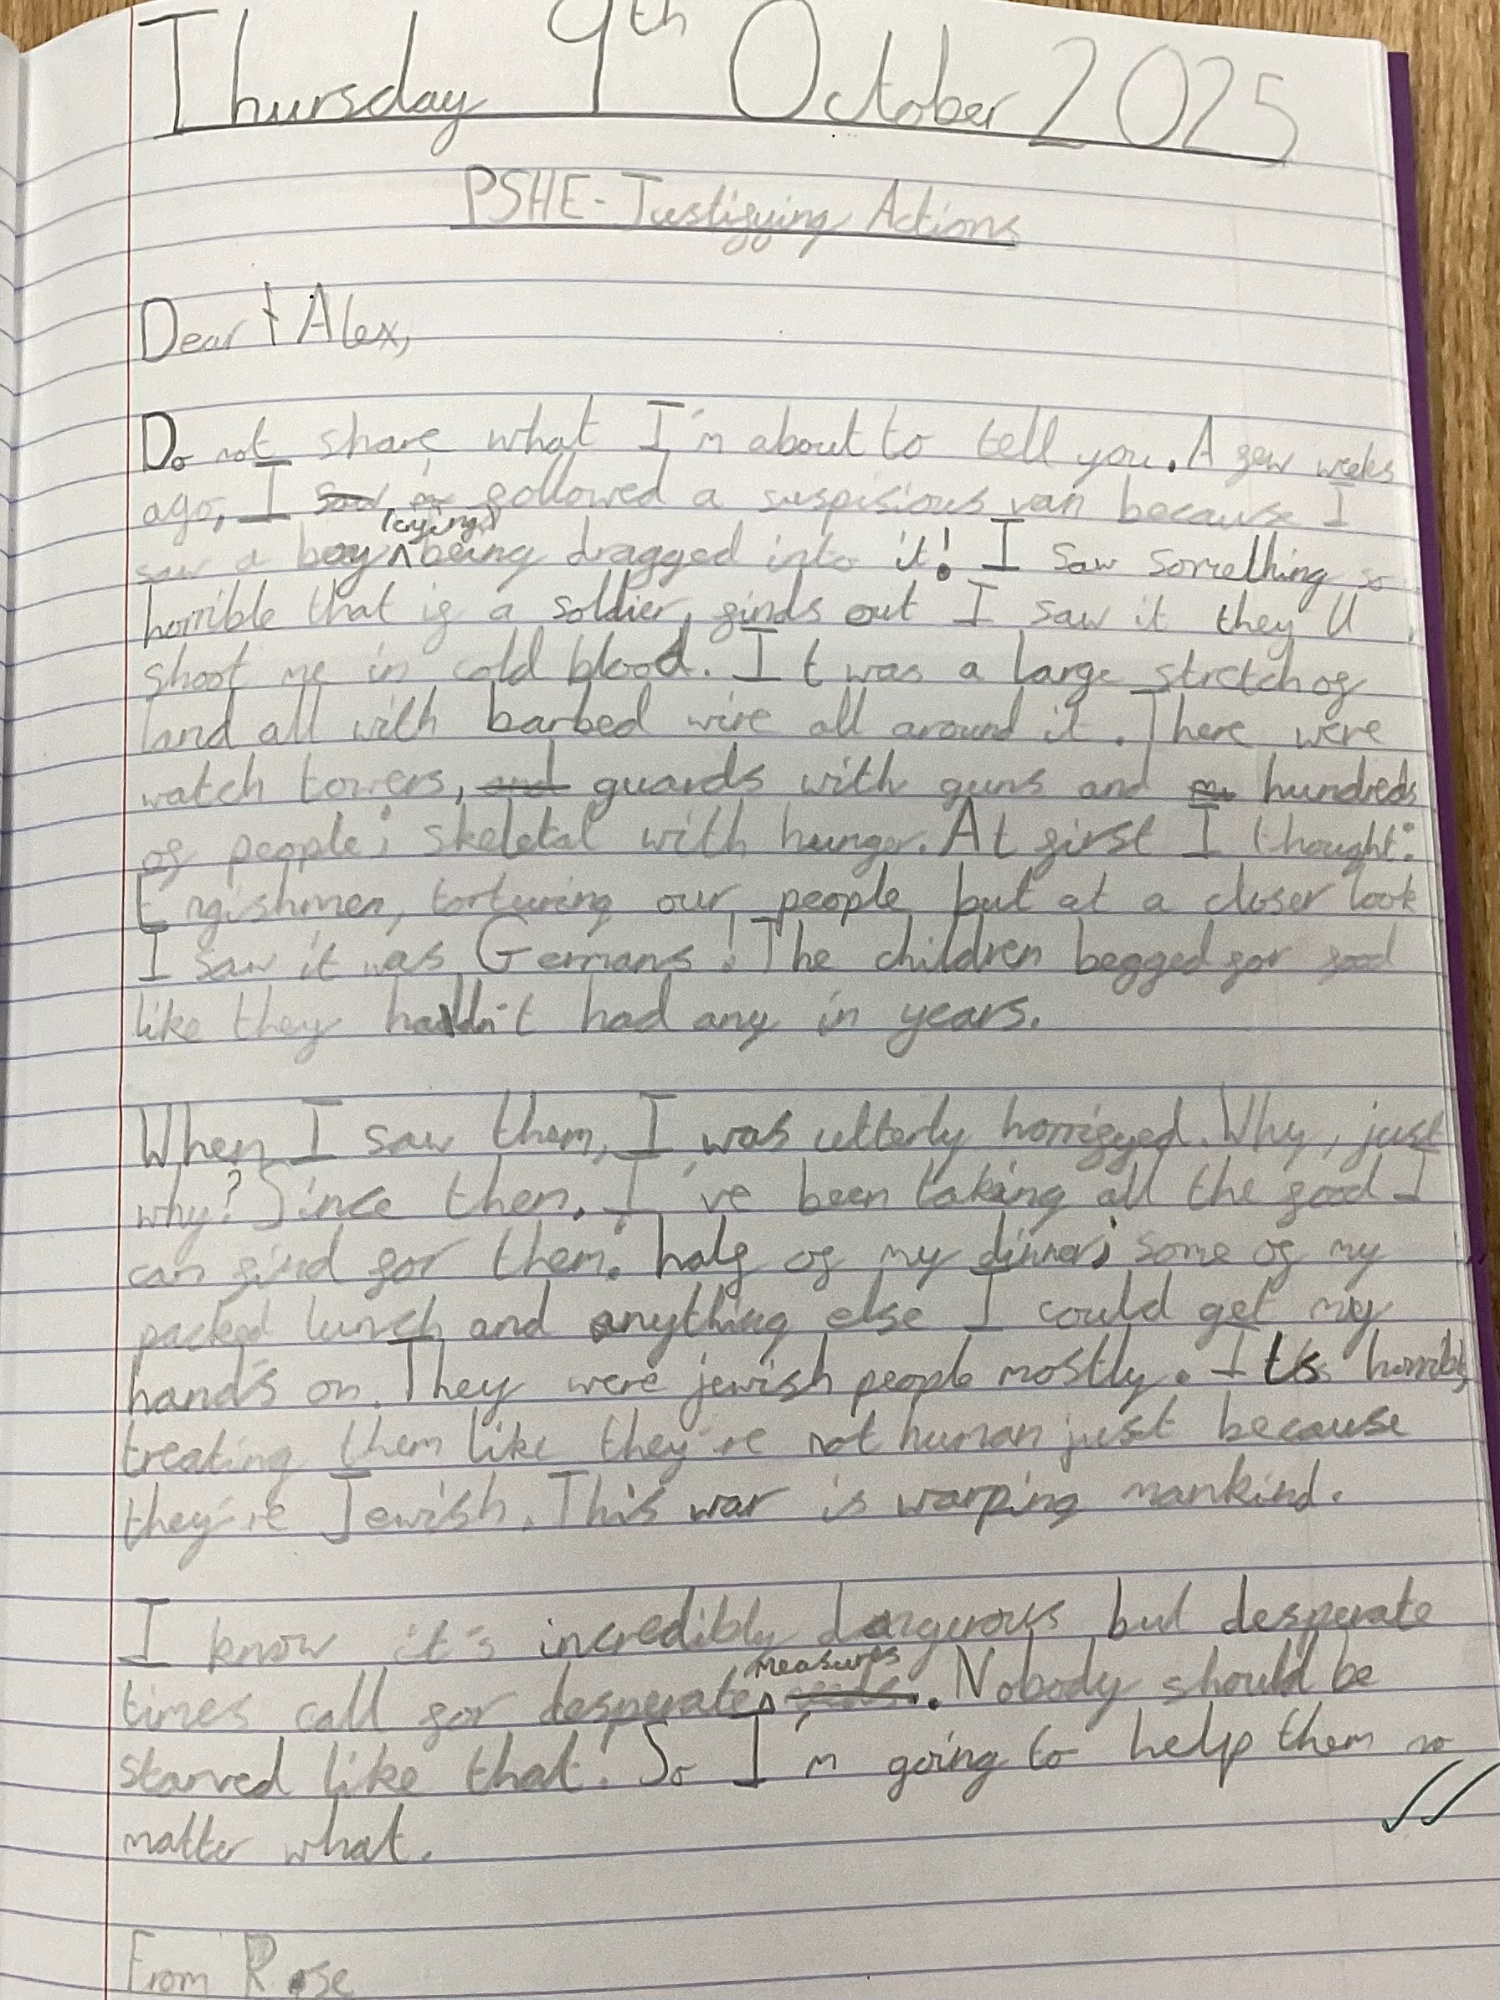 Thursday 9th October 2025
PSHE - Justifying Actions
Dear Alex,
Do not share what I'm about to tell you. A few weeks
ago, I saw followed a suspisious van because I
(crying)
saw a boy ^ being dragged into it! I saw something so
horrible that if a soldier finds out I saw it they'll
shoot me in cold blood. It was a large stretch of
land all with barbed wire all around it. There were
watch towers, and guards with guns and hundreds
of people; skeletal with hunger. At first I thought:
Engishmen, torturing our people but at a closer look
I saw it was Germans! The children begged for food
like they hadn't had any in years.
When I saw them, I was utterly horrifyed. Why, just
why? Since then, I've been taking all the food I
can find for them: half of my dinner; some of my
packed lunch and anything else I could get my
hands on. They were jewish people mostly. Its horrible,
treating them like they're not human just because
they're Jewish. This war is warping mankind.
I know it's incredibly dangerous but desperate
measures
times call for desperate ^ . Nobody should be
starved like that. So I'm going to help them no
matter what.
From Rose